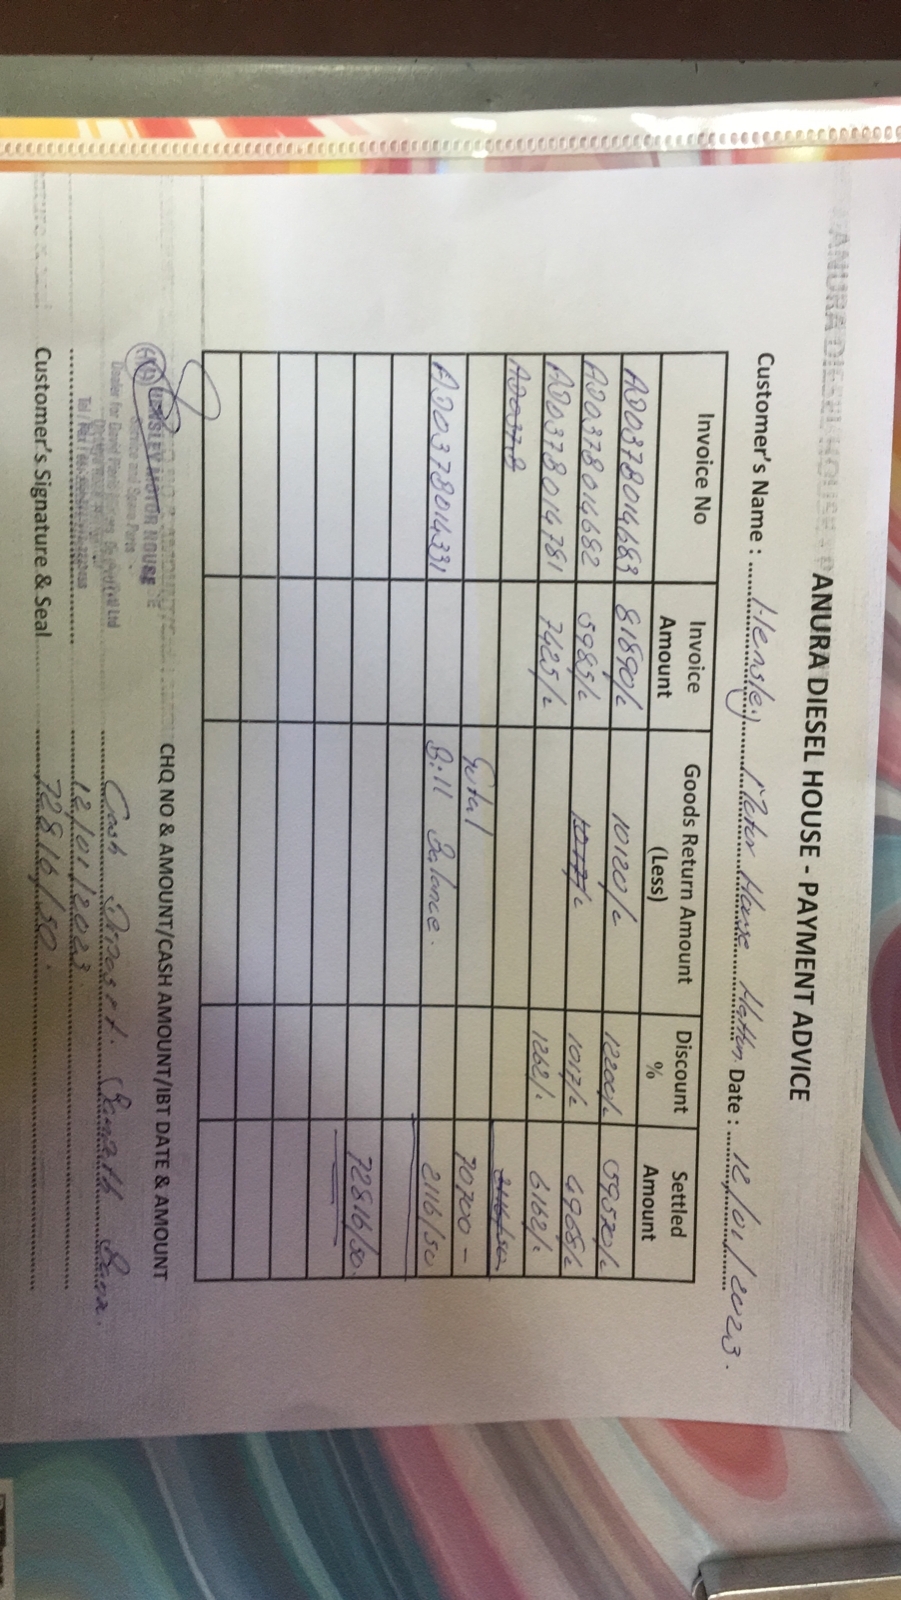 ANURA DIESEL HOUSE - PAYMENT ADVICE
Customer's Name : Hensley Motor House Hatton. Date : 12/01/2023.
Invoice No Invoice Amount Goods Return Amount (Less) Discount % Settled Amount
AD037B014683 81890/- 10120/- 12200/- 59570/-
AD037B014682 5985/- 1017/- 1017/- 4968/-
AD037B014781 7425/- 1262/- 6162/-
AD037B 2116/50
Total 70700 -
AD037B014331 Bill Balance. 2116/50
72816/50.
CHQ NO & AMOUNT/CASH AMOUNT/IBT DATE & AMOUNT
HENSLEY MOTOR HOUSE
Service and Spare Parts
Cash Deposit.
12/01/2023.
72816/50.
Customer's Signature & Seal